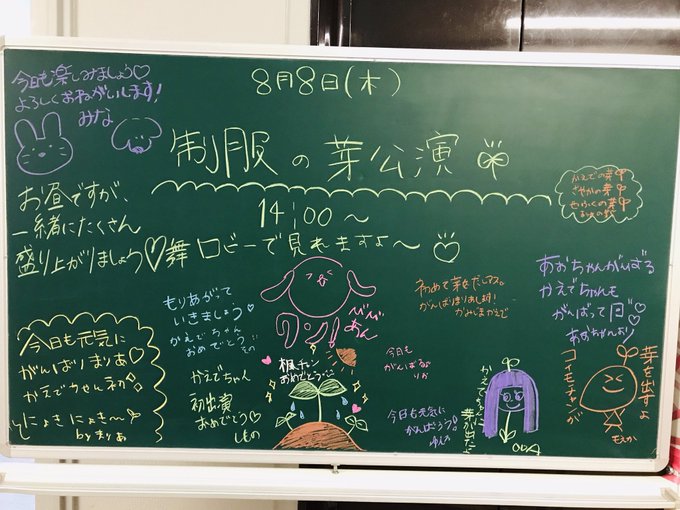 今日も楽しみましょう♡
よろしくおねがいします!
みな
8月8日(木)
制服の芽公演
14:00〜
お昼ですが、
一緒にたくさん
盛り上がりましょう♡舞
ロビーで見れますよ〜
かえでの芽
さやかの芽
もりあがって
いきましょう
かえでちゃん
おめでとう
その
ワン!
初めて芽をだしマス。
がんばりまりあします!
かみしまかえで
あおちゃんがんばる
かえでちゃんも
がんばって
あおちゃんより
今日も元気に
がんばりまりあ♡
かえでちゃん初
にょきにょき〜
byまりあ
かえでちゃん
初出演
おめでとう♡
しもの
楓チャン
おめでとう
今日も
がんばるぉ
りお
今日も元気に
がんばろう!
ゆんな
かえでちゃん
芽が出たよ
ODA
芽を出すよ
コイモチャンが
もえか